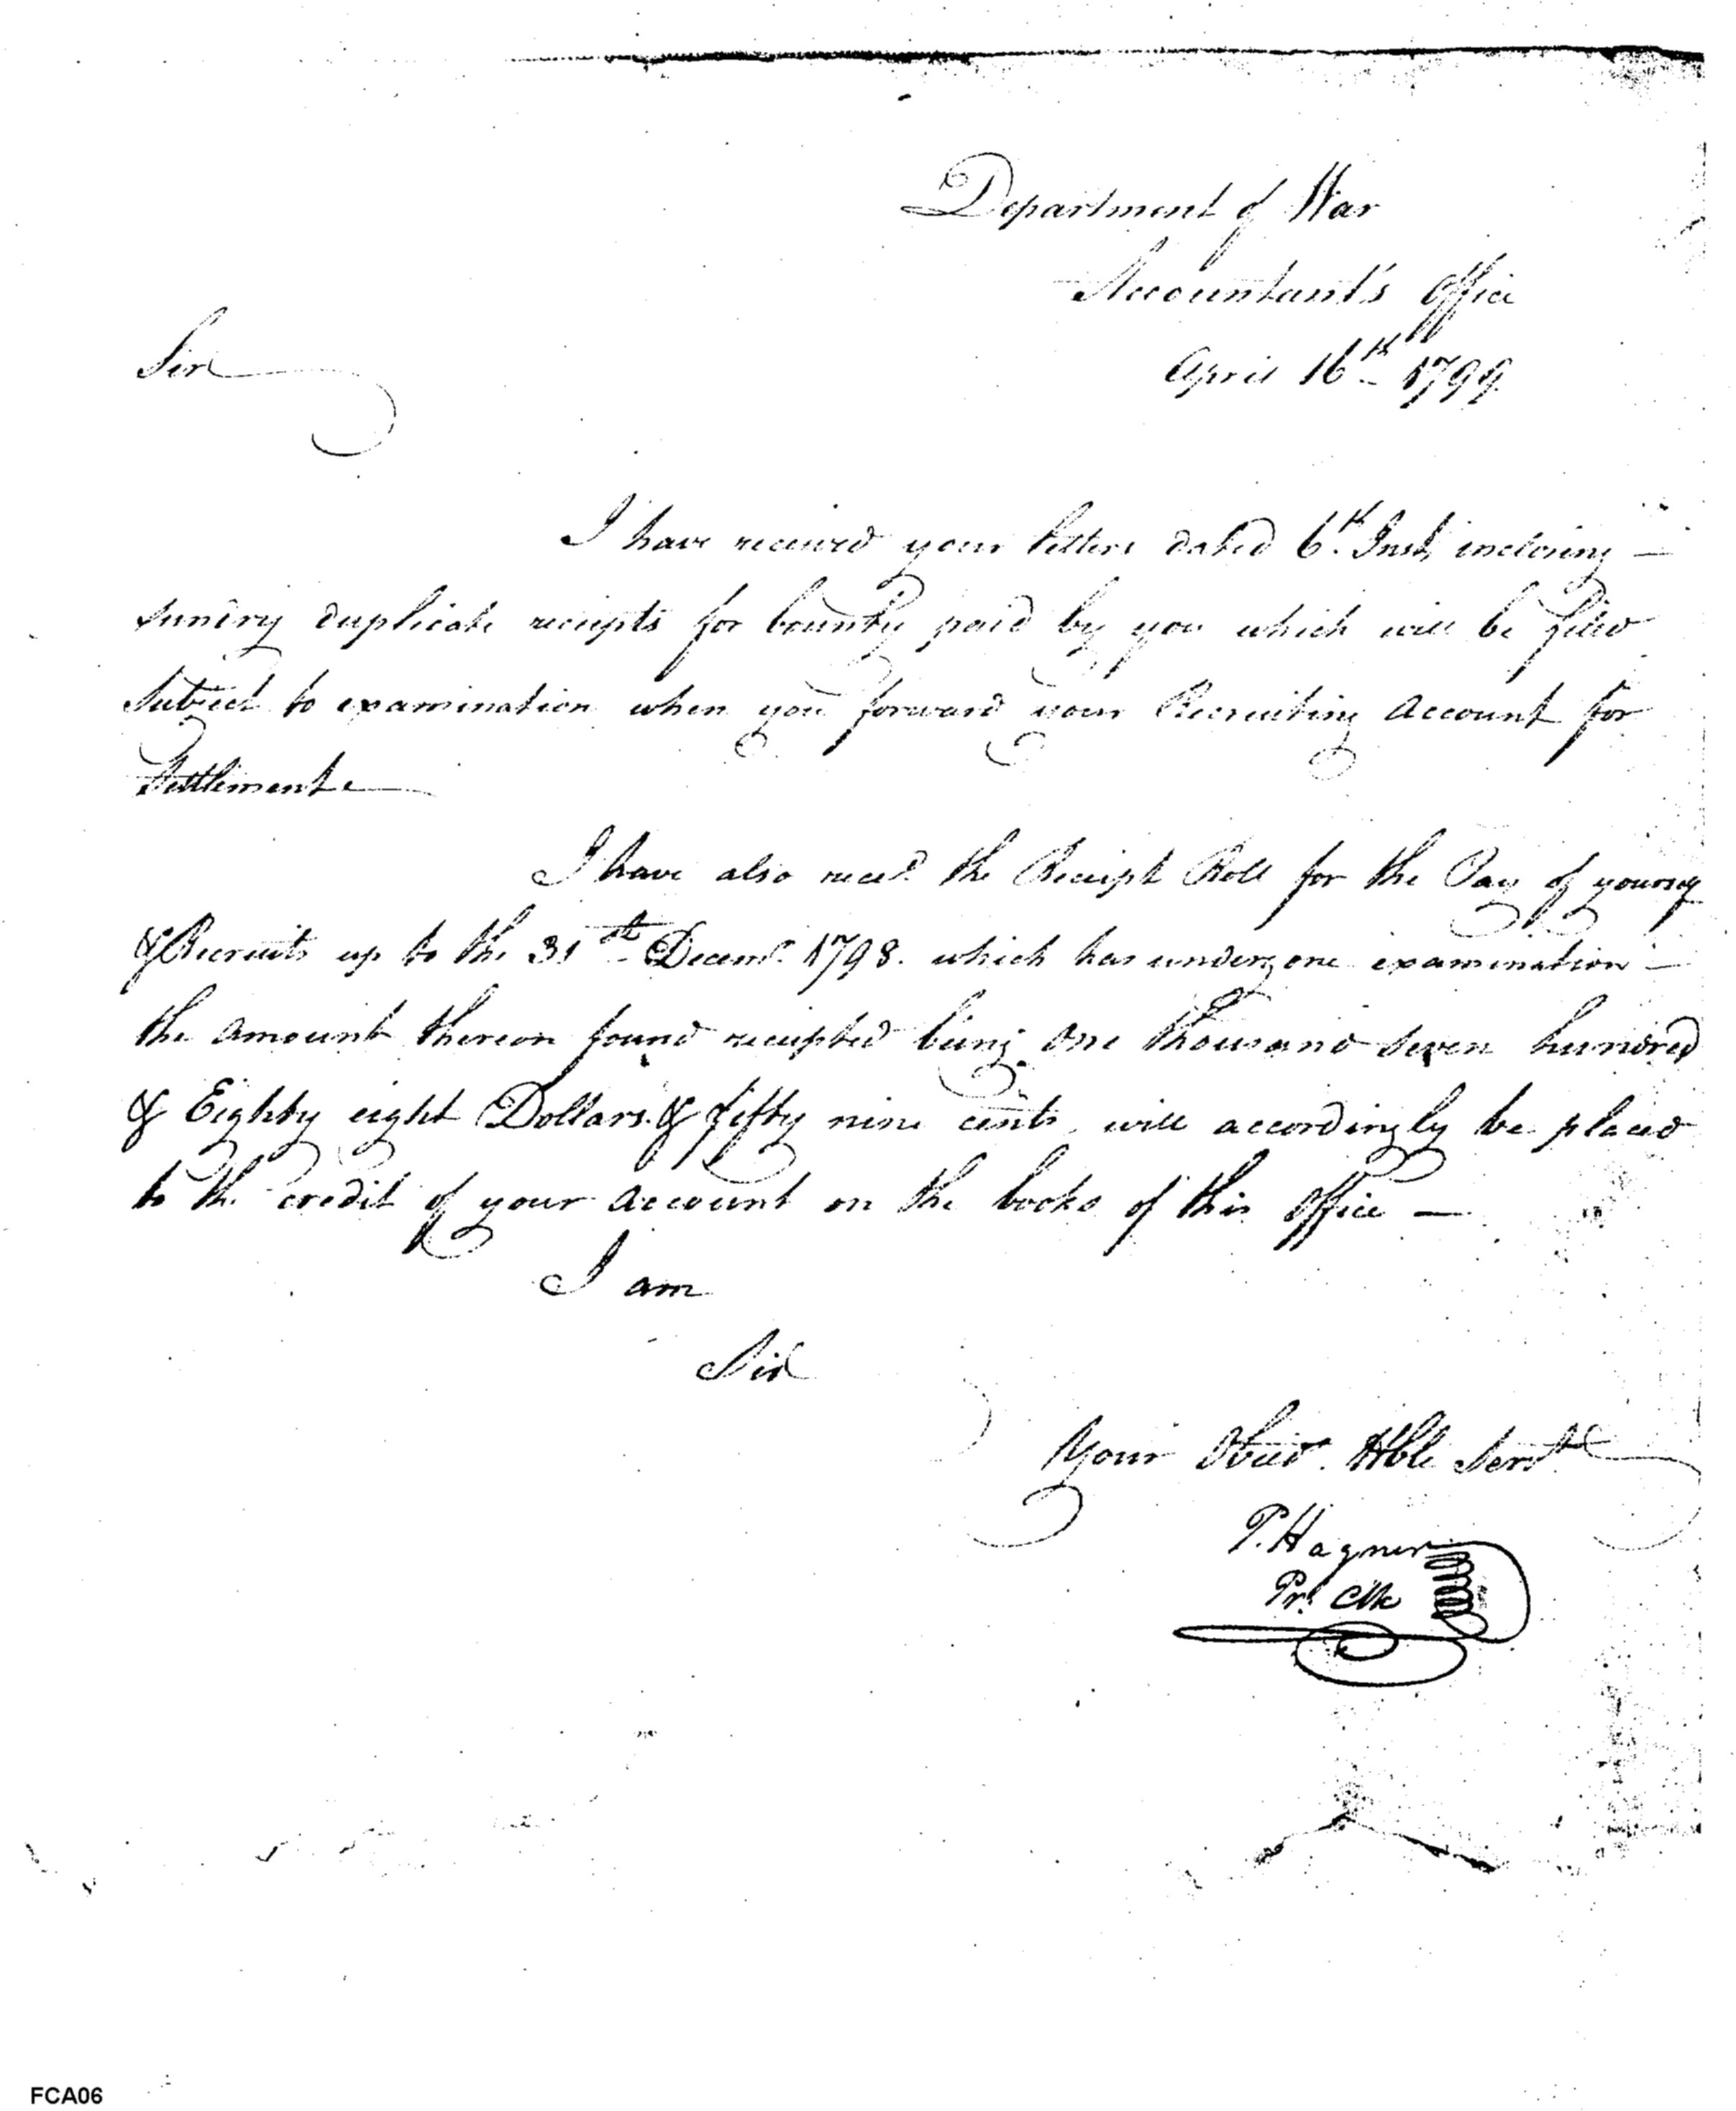 Department of War
Accountant's Office
April 16th 1799
Sir
I have received your letters dated 6th Inst, inclosing —
sundry duplicate receipts for bounty paid by you which will be filed
subject to examination when you forward your Recruiting Account for
Settlement.
I have also reced. the Receipt Roll for the Pay of yourself
& Recruits up to the 31st Decemr. 1798. which has undergone examination —
the amount thereon found receipted being One thousand seven hundred
& Eighty eight Dollars & fifty nine cents, will accordingly be placed
to the credit of your Account on the books of this Office —
I am
Sir
Your Obed. Hble Servt
P. Hagner
Prl Clk
FCA06